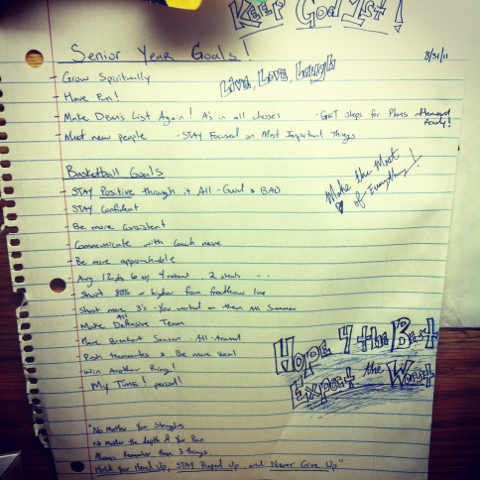 Keep God 1st!
Senior Year Goals!
8/30/11
- Grow Spiritually
Live, Love, Laugh
- Have Fun!
- Make Dean's List Again! A's in all classes - GET steps for Plans afterward Ready!
- Meet new people - STAY Focused on Most Important Things
Basketball Goals
Make the Most of Everything!
- STAY Positive through it All - Good & BAD
- STAY Confident
- Be more Consistent
- Communicate with Coach more
- Be more approachable
- Avg. 12 pts 6 4 2 steals
- Shoot 80% or higher from freethrow line
- Shoot more 3's - You worked on them All Summer
- Make All Defensive Team
- Have Breakout Season - All-around
- Push teammates & Be more Vocal
- Win Another Ring!
- My Time! period!
Hope 4 the Best
Expect the Worst
"No Matter Your Struggles
No Matter the depth of Your Pain
Always Remember these 3 things
Hold Your Head up, STAY Prayed Up, and Never Give Up"